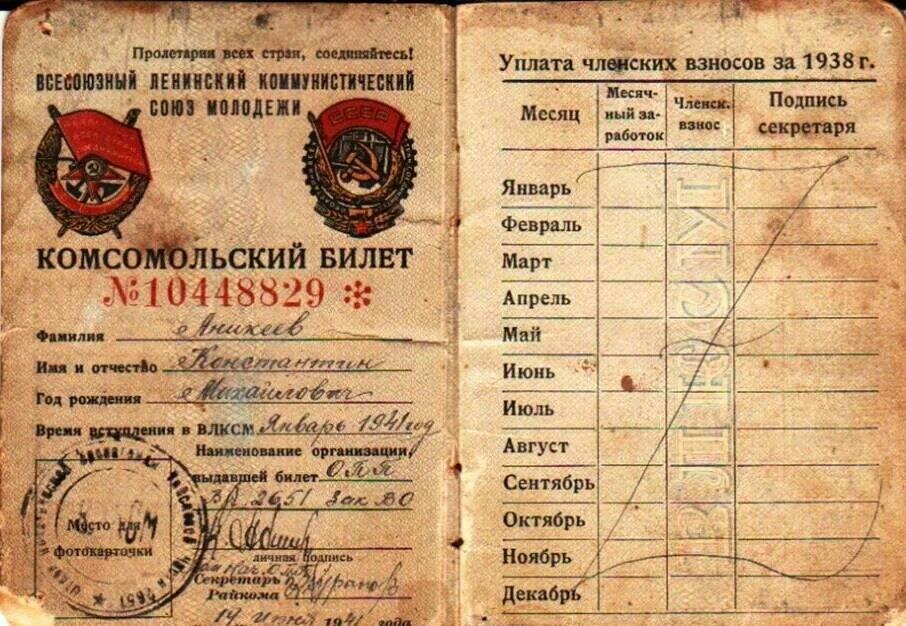 Пролетарии всех стран, соединяйтесь!
ВСЕСОЮЗНЫЙ ЛЕНИНСКИЙ КОММУНИСТИЧЕСКИЙ
СОЮЗ МОЛОДЕЖИ
СССР
КОМСОМОЛЬСКИЙ БИЛЕТ
№10448829
Фамилия Аникеев
Имя и отчество Константин
Год рождения Михайлович
Время вступления в ВЛКСМ Январь 1941 год
Наименование организации,
выдавшей билет ОПП
2651 Зак ВО
Место для
фотокарточки
личная подпись
Секретарь
Райкома
19 1941 года
Уплата членских взносов за 1938 г.
Месяц
Месяч-
ный за-
работок
Членск.
взнос
Подпись
секретаря
Январь
Февраль
Март
Апрель
Май
Июнь
Июль
Август
Сентябрь
Октябрь
Ноябрь
Декабрь